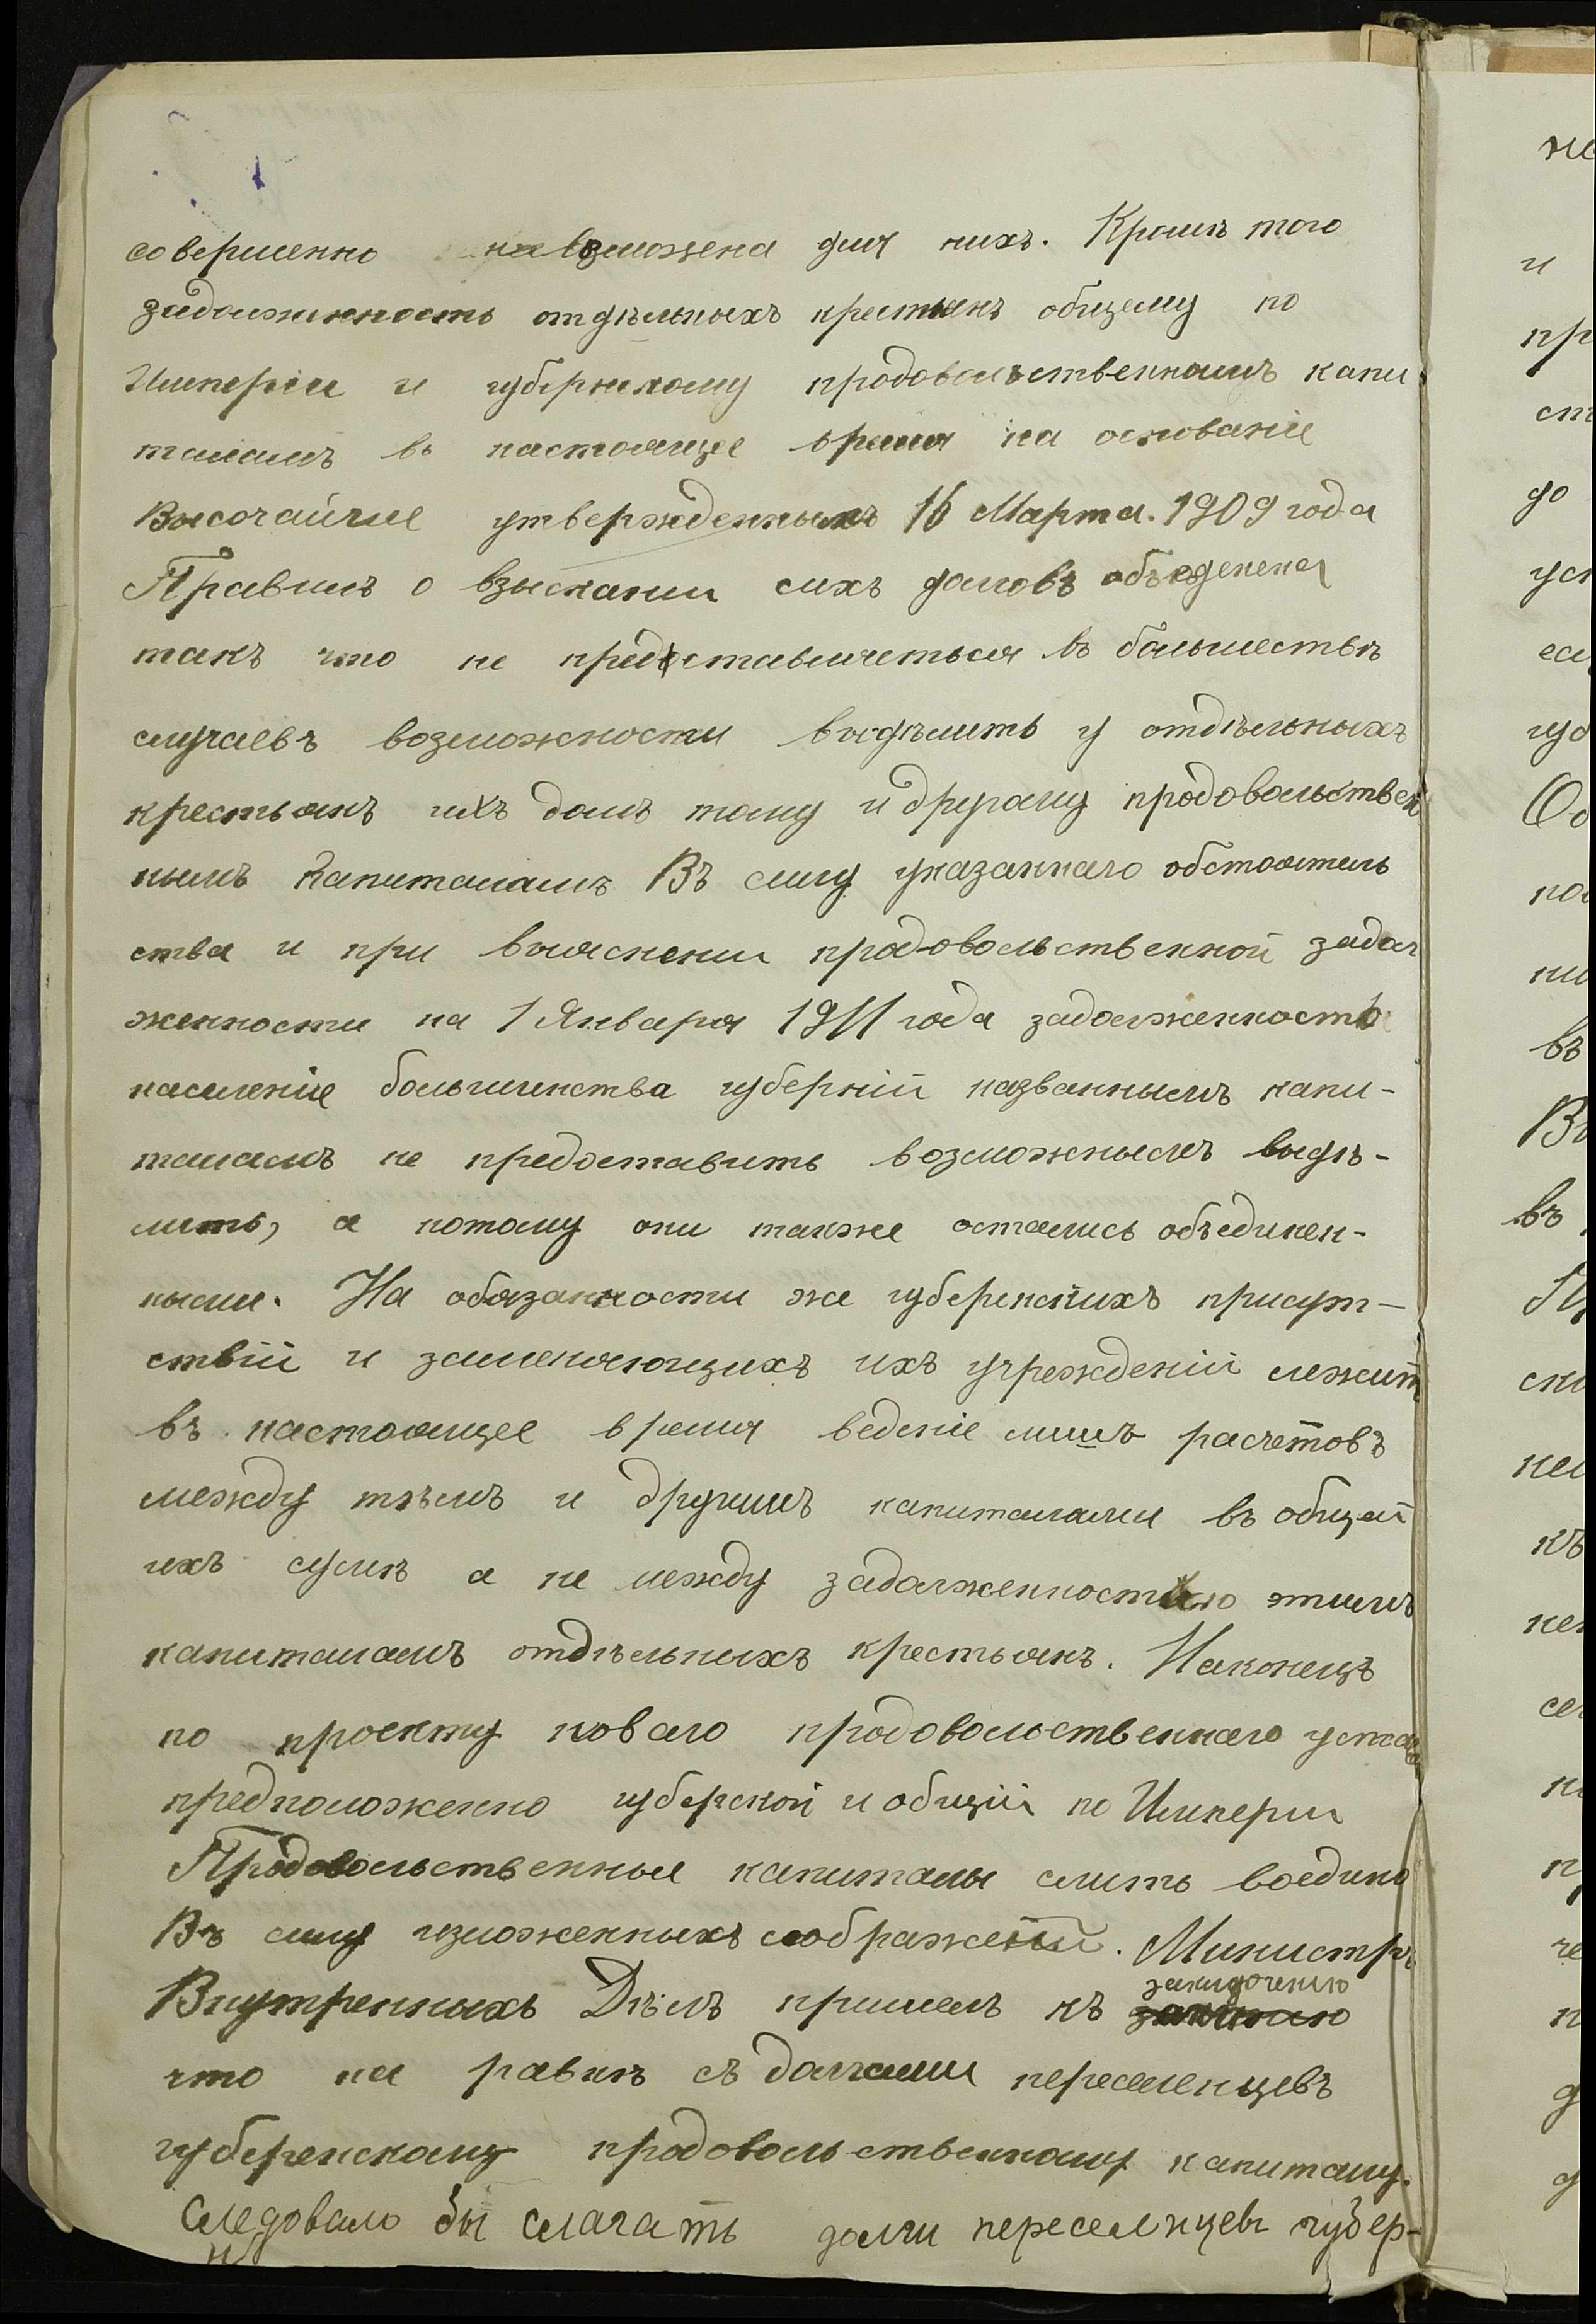 совершенно невозможена для нихъ. Кромѣ того
задолженность отдѣльныхъ крестьянъ общему по
Имперіи и губернскому продовольственнымъ капи
таламъ въ настоящее время на основаніе
Высочайше утвержденныхъ 16 Марта. 1909 года
Правилъ о взыскании сихъ долговъ объеденена
такъ что не представляеться въ большествѣ
случаевъ возможности выдѣлить у отдѣльныхъ
крестьянъ ихъ долгъ тому и другому продовольствен
нымъ капиталамъ Въ силу указаннаго обстоятель
ства и при выяснении продовольственной задол
женности на 1 Января 1911 года задолженность
населеніе большинства губерній названнымъ капи-
таламъ не предоставить возможнымъ выдѣ-
лить, а потому они также остались объединен-
ными. На обязанности же губеренскихъ присут-
ствій и заменяющихъ ихъ учрежденій лежит
въ настоящее время веденіе лишъ расчетовъ
между тѣмъ и другимъ капиталами въ общей
ихъ сумѣ а не между задолженностью этимъ
капиталамъ отдѣльныхъ крестьянъ. Наконецъ
по проекту новаго продовольственнаго устава
предположенно губерской и общій по Имперіи
Продовольственные капиталы слить воедино
Въ силу изложенныхъ соображеній. Министръ
Внутренныхъ Дѣлъ пришелъ къ заключению
что на равнѣ съ долгами переселенцевъ
губеренскому продовольственному капиталу.
Следовало бы слагать долги переселнцевъ губер-
н
не
и
пр
ст
до
уст
есл
губ
Од
пос
ни
въ
Вн
въ
Пр
ски
нем
къ
нен
сел
на
пр
че
п
д
д